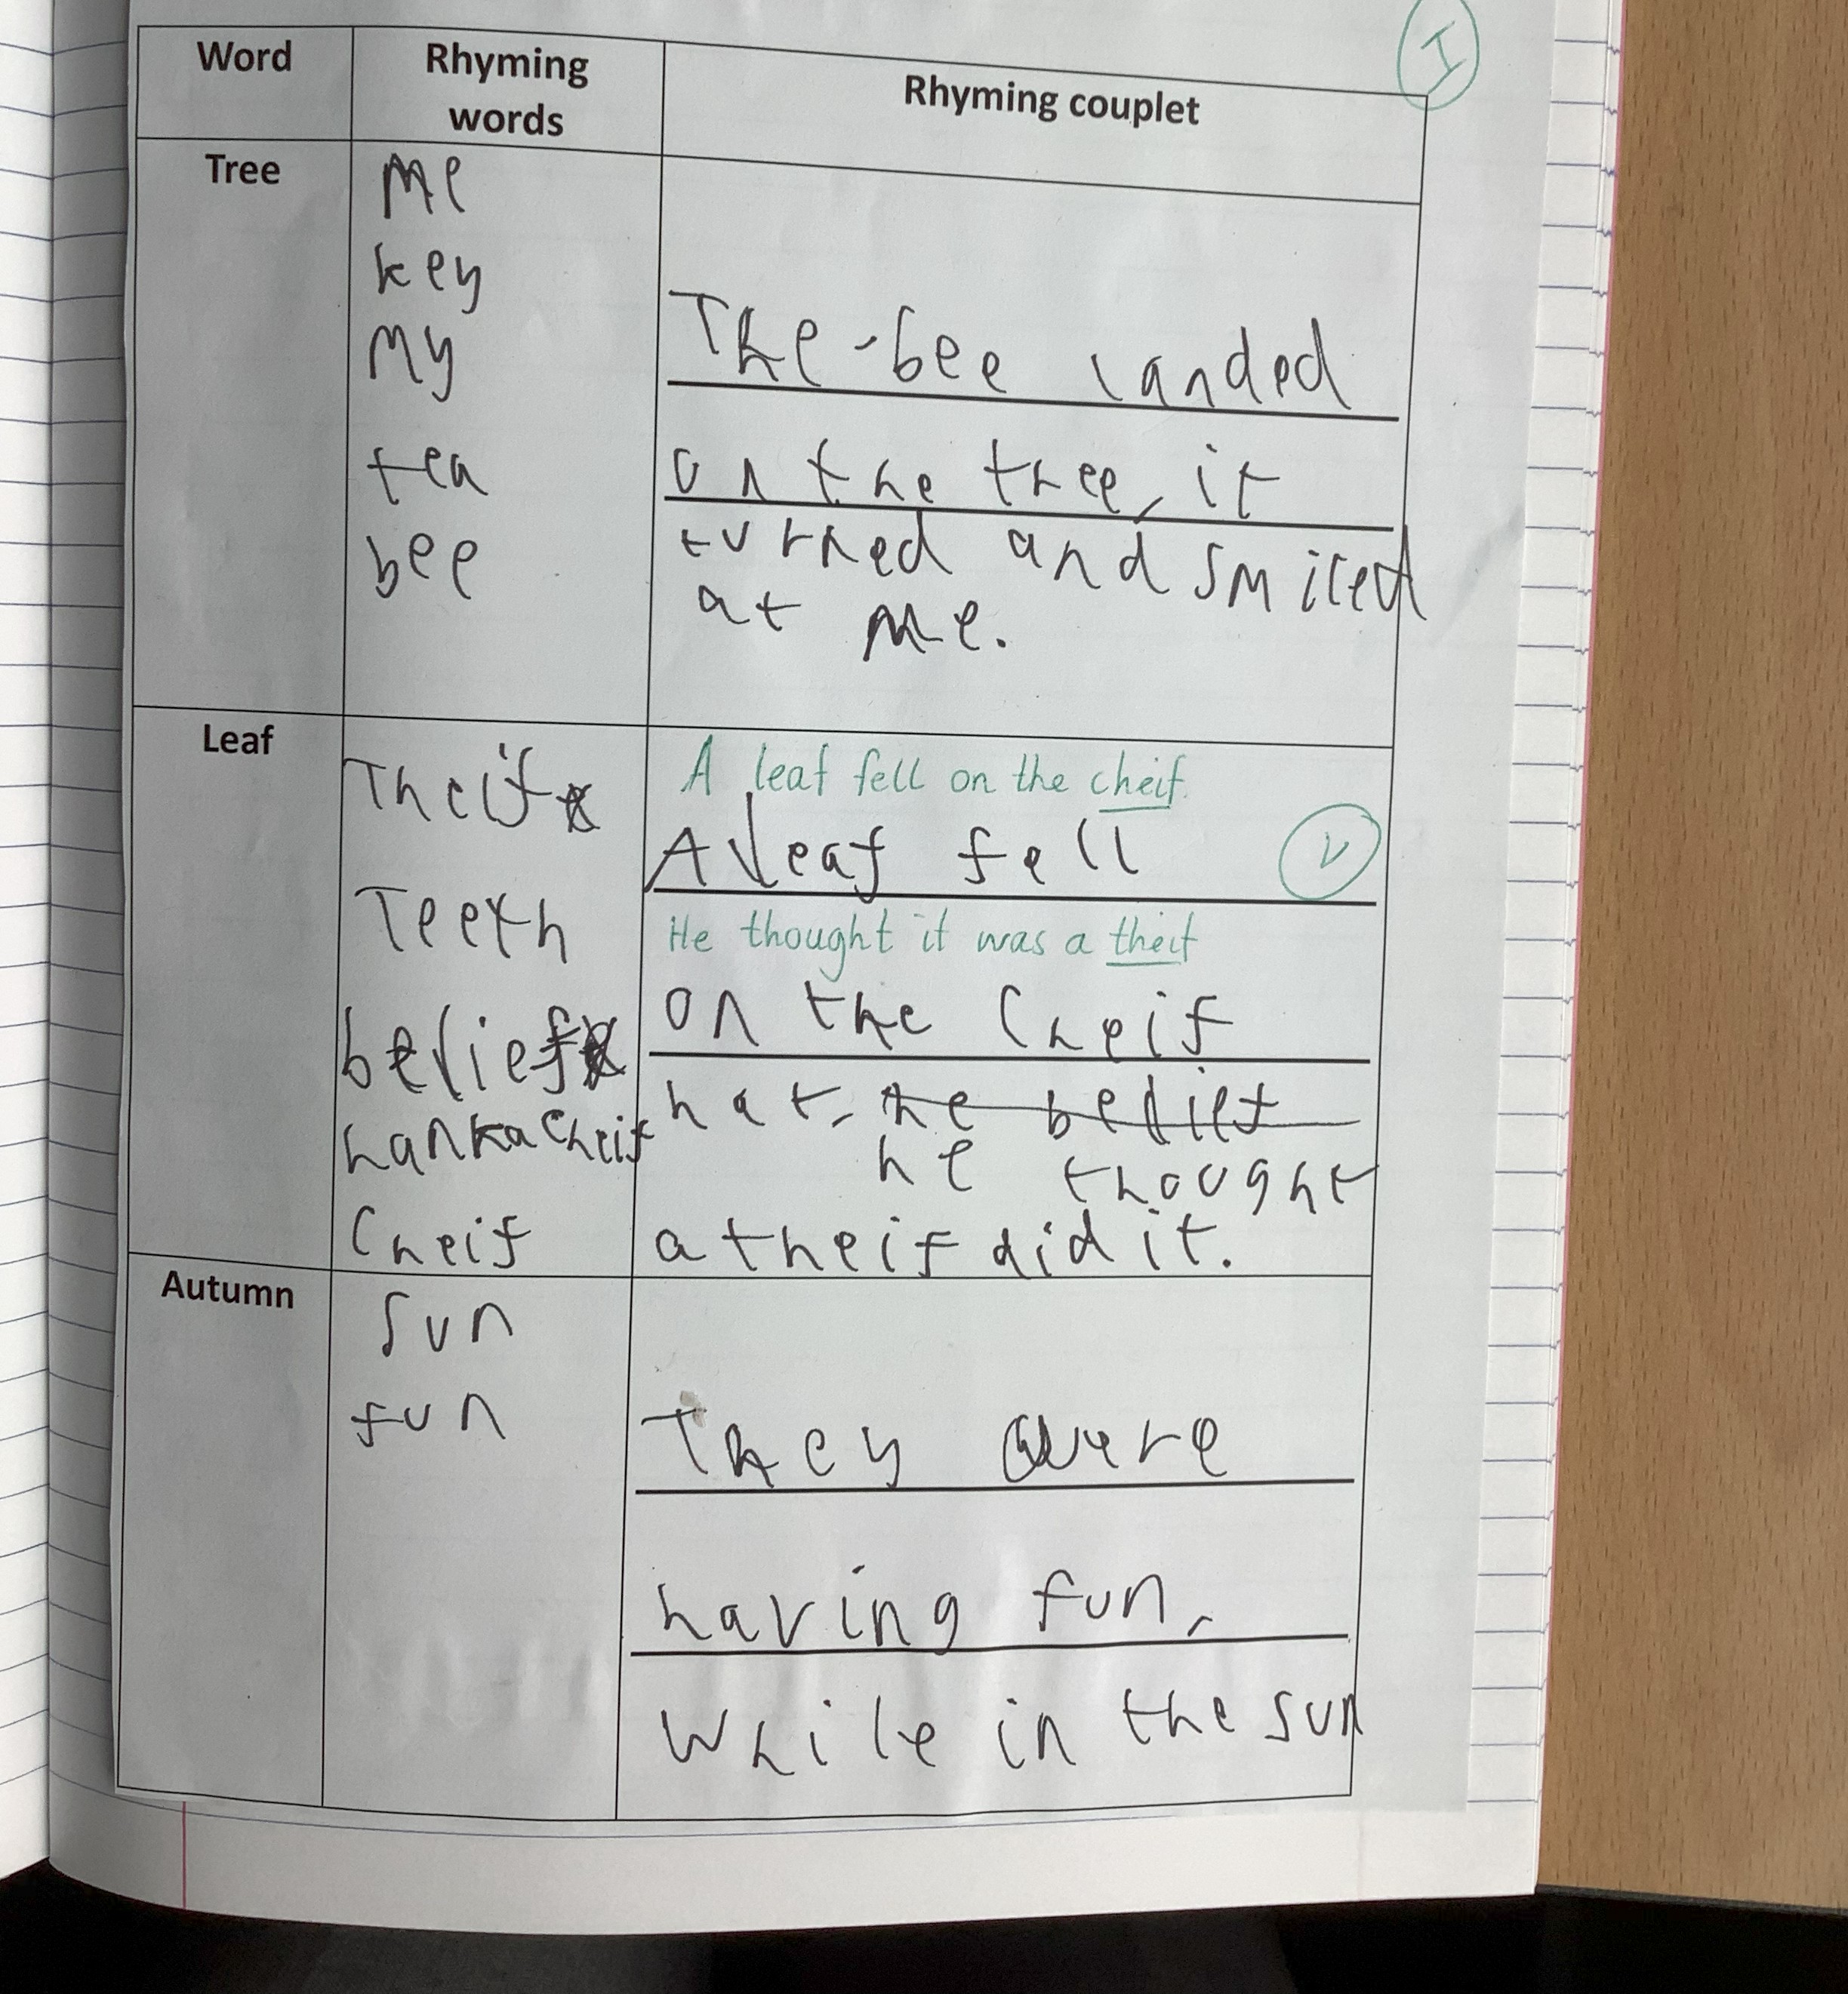 I
Word
Rhyming words
Rhyming couplet
Tree
me
key
my
tea
bee
The bee landed
on the tree, it
turned and smiled
at me.
Leaf
Theif
Teeth
belief
hankacheif
Cheif
A leaf fell on the cheif.
A leaf fell
V
He thought it was a theif
on the Cheif
hat, he belief
he thought
a theif did it.
Autumn
sun
fun
They were
having fun,
While in the sun